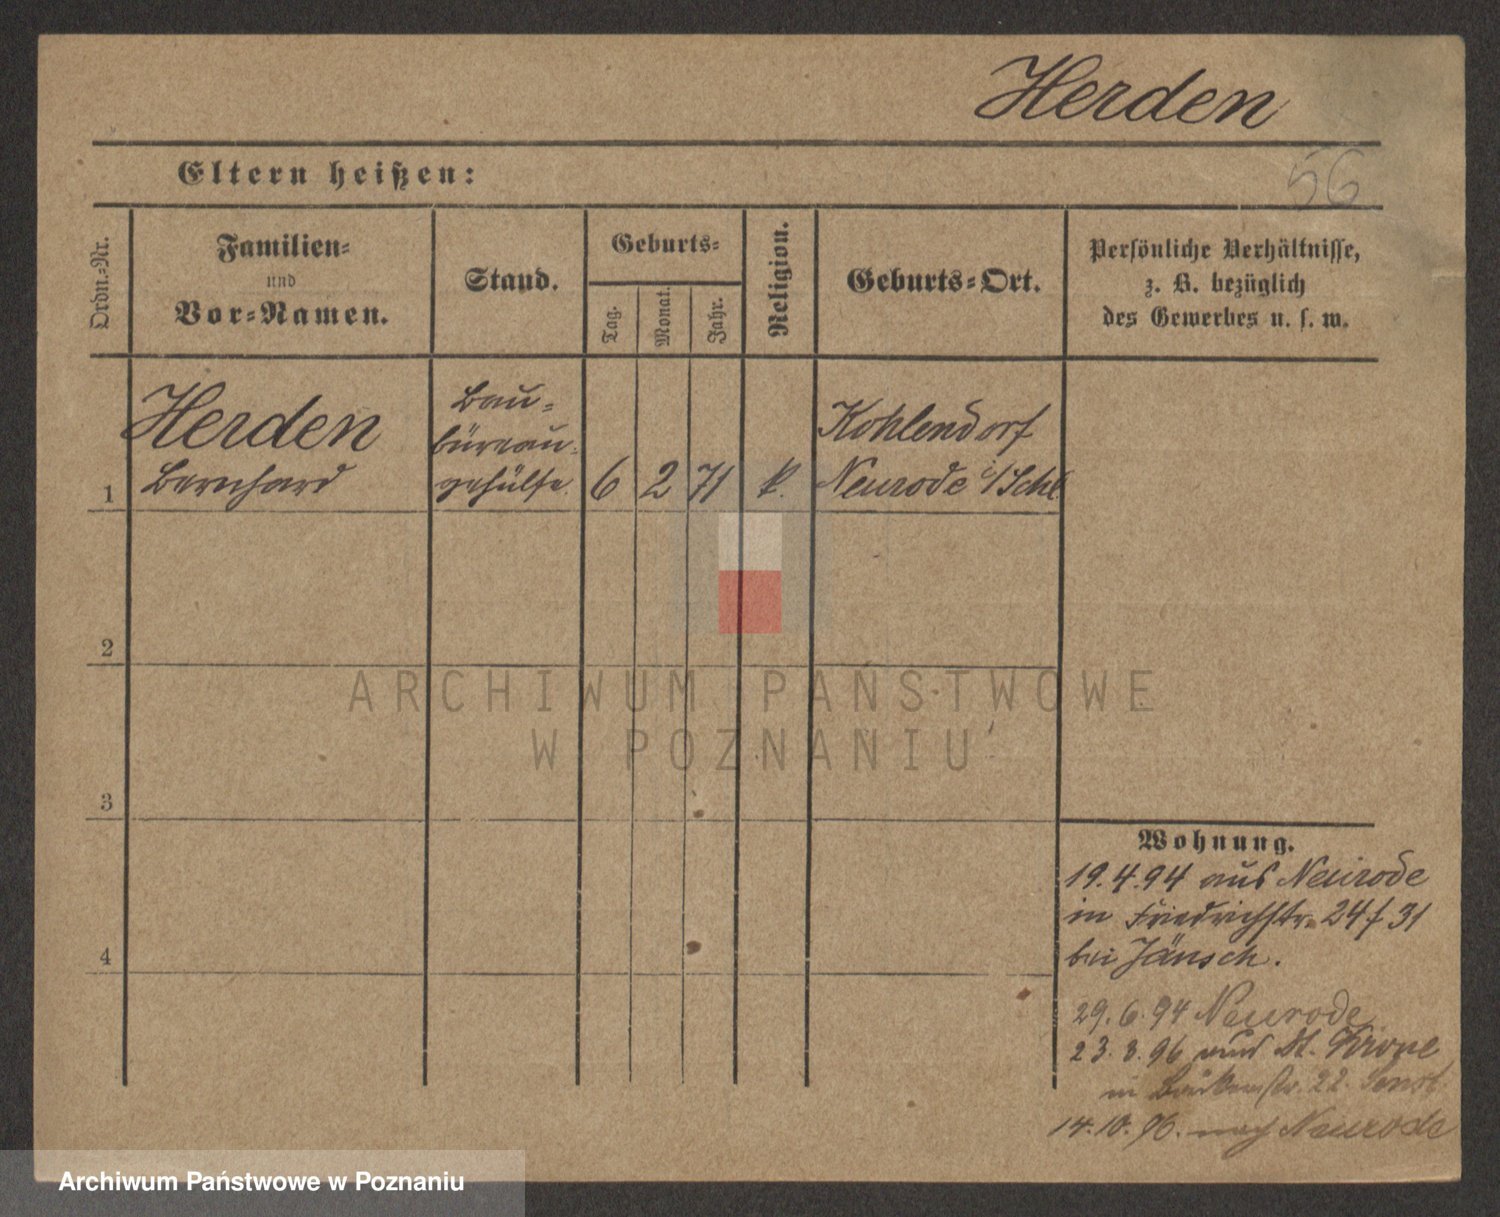 Herden
56
Eltern heißen:
Ordn.=Nr.
Familien=
und
Vor=Namen.
Stand.
Geburts=
Tag.
Monat.
Jahr.
Religion.
Geburts=Ort.
Persönliche Verhältnisse,
z. B. bezüglich
des Gewerbes u. s. w.
Herden
Bernhard
Bau=
büreau=
gehülfe.
1
6
2
71
k.
Kohlendorf
Neurode i/Schl
2
3
4
Wohnung.
19.4.94 aus Neurode
in Friedrichstr. 24 f 31
bei Jänsch.
29.6.94 Neurode
23.8.96 aus Dt. Krone
in 22.
14.10.96. nach Neurode
ARCHIWUM PAŃSTWOWE
W POZNANIU
Archiwum Państwowe w Poznaniu